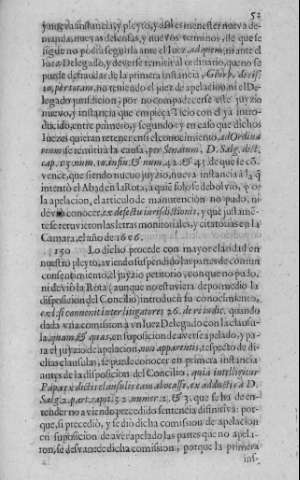 52
y nueva instancia, y pleyto, y assi es menester nueva de-
manda, nuevas defensas, y nuevos terminos, ‑ste que se
sigue no podia seguirla ante el Iuez ad quem, ni ante el
Iuez Delegado, y deverse remitir al ordinario, que no se
puede defraudar de la primera instancia,
no teniendo el juez de apelacion ni el De-
legado jurisdicion, por no compadecerse este juyzio
nuevo, y instancia que empieça con el ya intro-
ducido, entre primero, y segundo: y en caso que dichos
Iuezes quieran retenerse el conocimiento, ad Ordina-
rium de remitir la causa, per Senatum, D. Salg. dict.
cap. 13. num. 10. in fin. & num. 42. & 45. de que se co
vence, que siendo nuevo juyzio, nueva instancia la q̃
intentò el Abad en la Rota, a quiẽ solo se debolviò, por
la apelacion, el articulo de manutencion no pudo, ni
deviò conocer, ex defectu iurisdictionis, y que justamẽ-
te se retuvieron las letras monitoriales, y citatorias en la
Camara, el año de 1606.
150 Lo dicho procede con mayor claridad en
nuestro pleyto, aviendo suspendido las partes de comun
consentimiento, el juyzio petitorio, con que no pudo,
ni deviò la Rota (aunque no estuviera de por medio la
disposicion del Concilio) introducir su conocimiento,
ex l. si convenit inter litigatores 26. de re iudic. quando
dada vna comission à vn Iuez Delegado con la clausu-
la quam & quas, en suposicion de averse apelado, y pa-
ra el juyzio de apelacion, non apparentis, respecto de di-
chas clausulas, se puede conocer en primera instancia
antes de la disposicion del Concilio, quia intelligitur
Papa ex dictis clausulis eam abocasse, ex adductis à D.
Salg. 2. part. cap. 13. numer. 2. & 3. que se ha de en-
tender no aviendo precedido sentencia difinitiva: por-
que, si precediò, y se diò dicha comission de apelacion
en suposicion de aver apelado las partes que no apela-
ron, se desvanece dicha comission, porque la primera
ins-